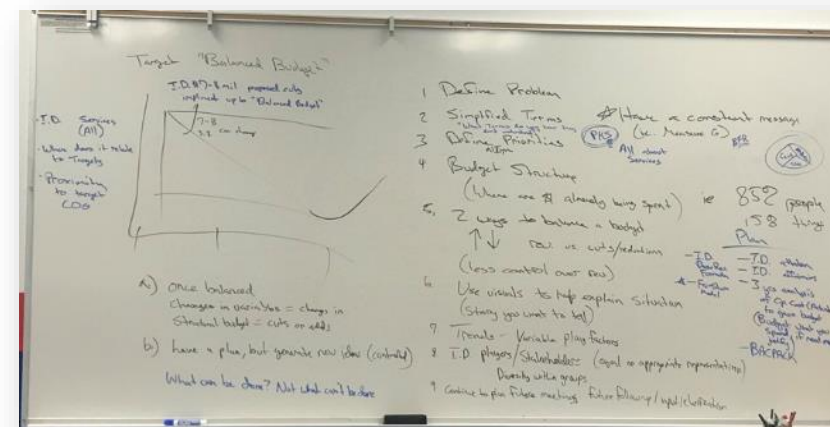 Target "Balanced Budget"
I.D. $7-8 mil proposed cuts
implement up to "Balanced Budget"
7-8
can change
- I.D. Services
(All)
- Where does it relate
to Targets
- Proximity
to target
a) once balanced
changes in variables = change in
Structural budget = cuts or adds
b) have a plan, but generate new ideas (controlled)
What can be done? Not what can't be done
1 Define Problem
2 Simplified Terms
3 Define Priorities
4 Budget Structure
(Where are $ already being spent)
5. 2 ways to balance a budget
rev vs. cuts/reductions
(less control over rev)
6 Use visuals to help explain situation
(Story you want to tell)
7 Trends - Variable play factors
8 I.D. players/Stakeholders (equal or appropriate representation)
Diversity within groups
9 Continue to plan future meetings future followup/input/clarification
Have a consistent message
(ie. Measure G)
PKS
All about
Services
ie 852 people
158 things
Plan
- I.D.
Formula
- I.D. attrition
- I.D.
- 3 yrs analysis
of Op Cost
to your budget
(Budget what you
spend,
- BACPACK